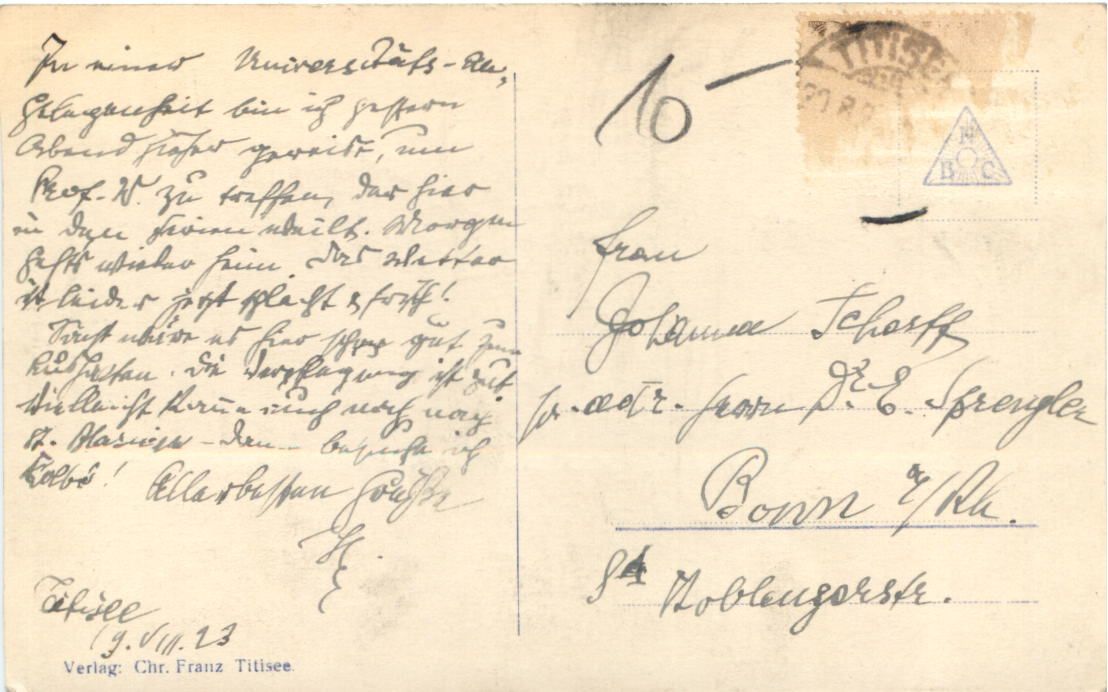 In einer Universitäts-An,
gelegenheit bin ich gestern
Abend hieher gereist, um
Prof. W. zu treffen, der hier
in den Ferien weilt. Morgen
gehts wieder heim. Das Wetter
ist leider jetzt schlecht & frisch!
Sonst wäre es hier gut zum
Aushalten. Die Verpflegung ist gut.
Vielleicht kann noch nach
St. Blasien - dann besuche ich
Kolbs!
Allerbesten Grüße
Titisee
19. VIII. 23
Verlag: Chr. Franz Titisee.
10
TITISEE
N
B C
Frau
Johanna Scharff
pr. adr. Herrn Dr. E. Sprengler
Bonn a/Rh.
Koblenzerstr.